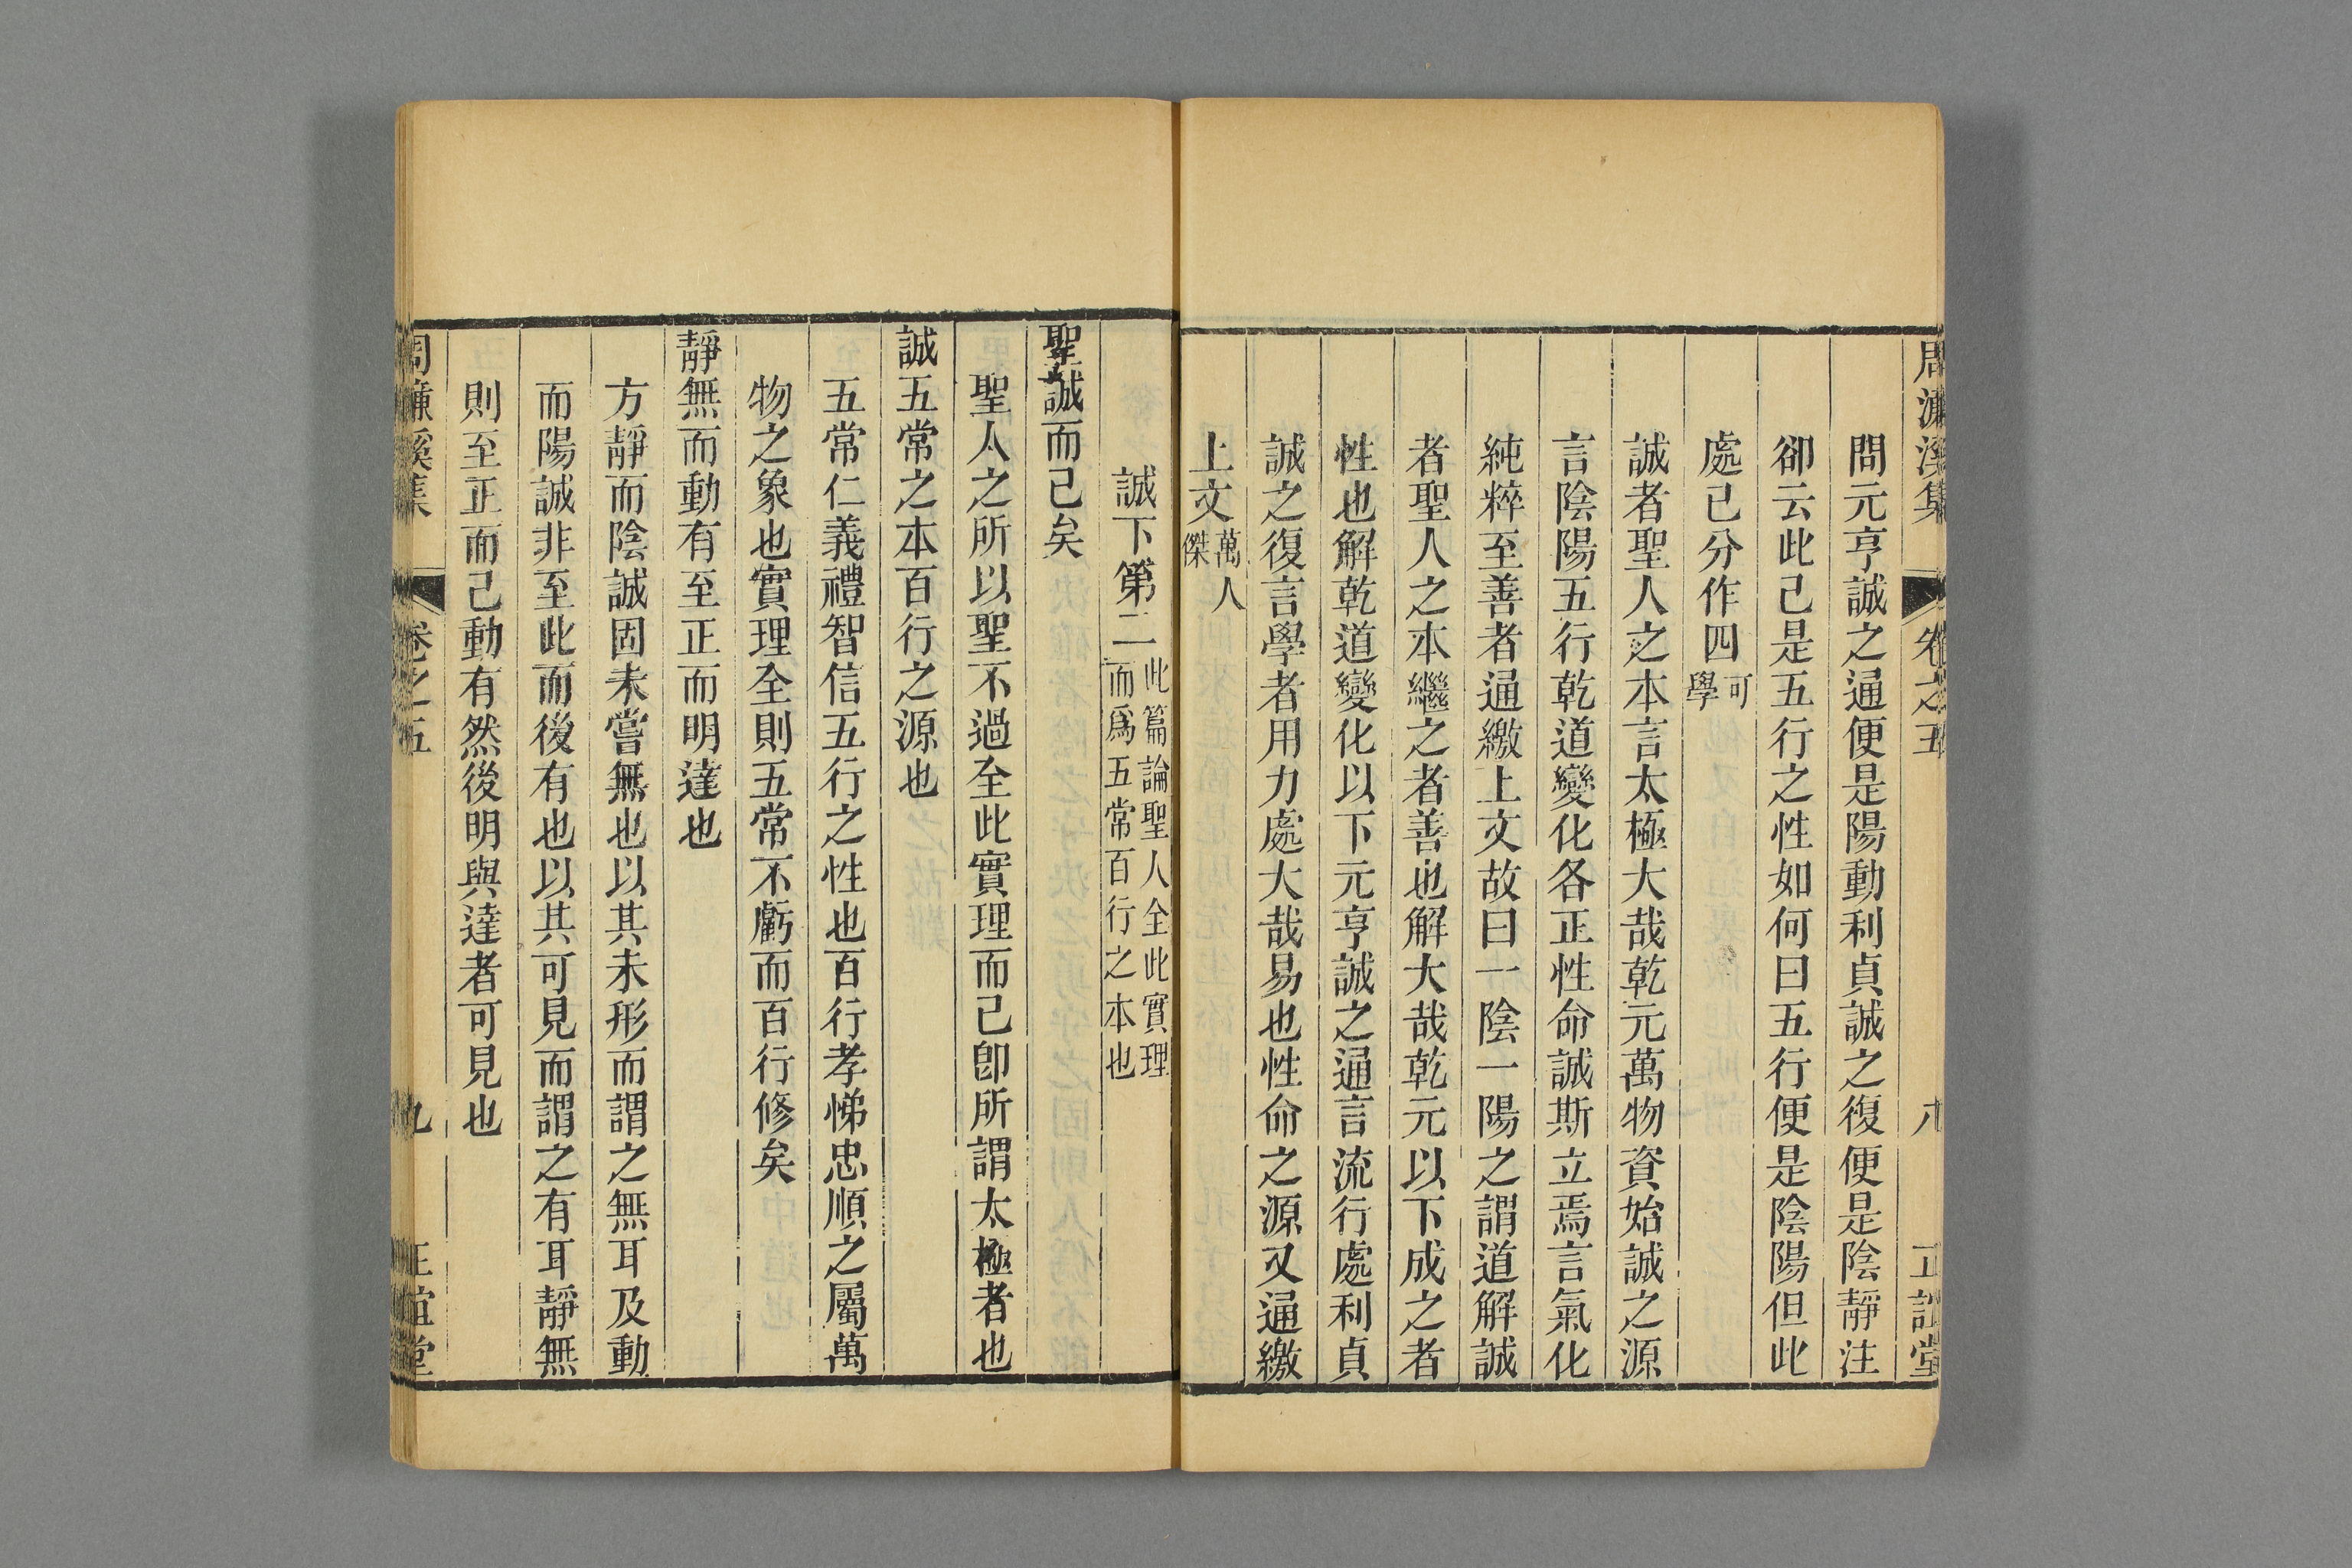 周濂溪集 卷之五 八 正誼堂
問元亨誠之通便是陽動利貞誠之復便是陰靜注
卻云此已是五行之性如何曰五行便是陰陽但此
處已分作四可學
誠者聖人之本言太極大哉乾元萬物資始誠之源
言陰陽五行乾道變化各正性命誠斯立焉言氣化
純粹至善者通繳上文故曰一陰一陽之謂道解誠
者聖人之本繼之者善也解大哉乾元以下成之者
性也解乾道變化以下元亨誠之通言流行處利貞
誠之復言學者用力處大哉易也性命之源又通繳
上文萬人傑
誠下第二此篇論聖人全此實理
而爲五常百行之本也
聖誠而已矣
聖人之所以聖不過全此實理而已卽所謂太極者也
誠五常之本百行之源也
五常仁義禮智信五行之性也百行孝悌忠順之屬萬
物之象也實理全則五常不虧而百行修矣
靜無而動有至正而明達也
方靜而陰誠固未嘗無也以其未形而謂之無耳及動
而陽誠非至此而後有也以其可見而謂之有耳靜無
則至正而已動有然後明與達者可見也
周濂溪集 卷之五 九 正誼堂